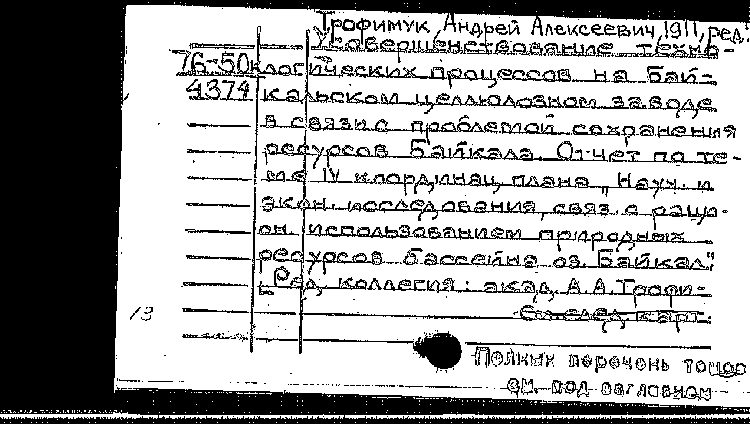 Трофимук, Андрей Алексеевич, 1911, ред.
Усовершенствование техно-
76-50к логических процессов на Бай-
4374 кальском целлюлозном заводе
в связи с проблемой сохранения
ресурсов Байкала. Отчет по те-
ме IV координац. плана „Науч. и
экон. исследования, связ. с рацио-
он. использованием природных
ресурсов бассейна оз. Байкал".
[Ред. коллегия: акад. А.А. Трофи-
См. след. карт.
13
Полный перечень томов
см. под заглавием